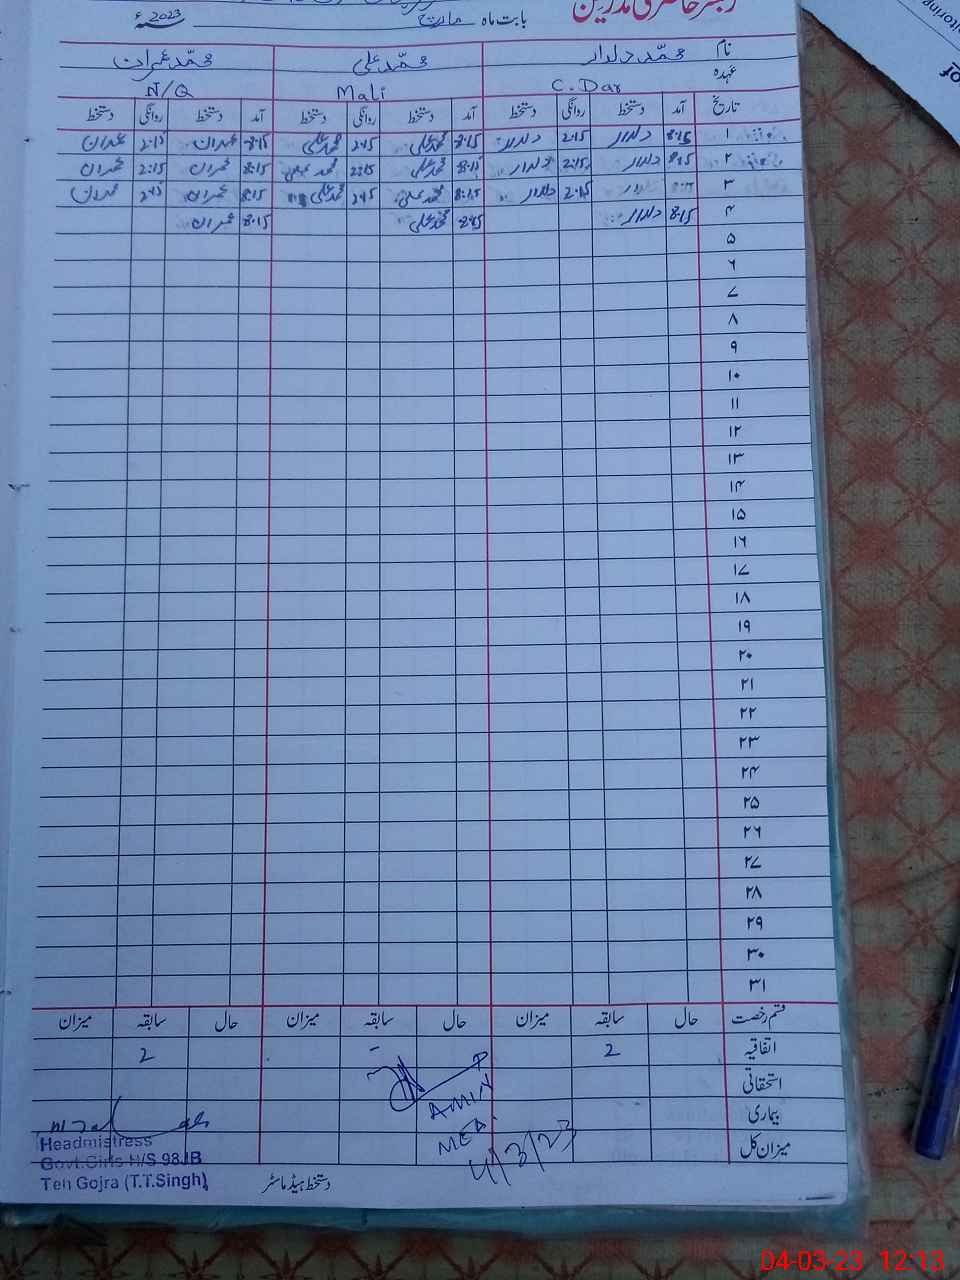 رجسٹر حاضری مدرسین
بابت ماہ مارچ 2023ء
نام محمد دلدار محمد علی محمد عمران
عہدہ C. Dar Mali N/Q
تاریخ آمد دستخط روانگی دستخط آمد دستخط روانگی دستخط آمد دستخط روانگی دستخط
۱ 8:15 دلدار 2:15 دلدار 8:15 محمد علی 2:45 محمد علی 8:15 عمران 2:15 عمران
۲ 8:15 دلدار 2:15 دلدار 8:15 محمد علی 2:15 محمد علی 8:15 عمران 2:15 عمران
۳ دلدار 2:15 دلدار 8:15 محمد علی 2:45 محمد علی 8:15 عمران 2:45 عمران
۴ 8:15 دلدار 8:45 محمد علی 8:15 عمران
۵
۶
۷
۸
۹
۱۰
۱۱
۱۲
۱۳
۱۴
۱۵
۱۶
۱۷
۱۸
۱۹
۲۰
۲۱
۲۲
۲۳
۲۴
۲۵
۲۶
۲۷
۲۸
۲۹
۳۰
۳۱
قسم رخصت حال سابقہ میزان حال سابقہ میزان حال سابقہ میزان
اتفاقیہ 2 - 2
استحقاقی
بیماری
میزان کل
AMIN
MEA
4/3/23
Headmistress
Govt.Girls H/S 98JB
Teh Gojra (T.T.Singh)
دستخط ہیڈ ماسٹر
itoring
of
04-03-23 12:13